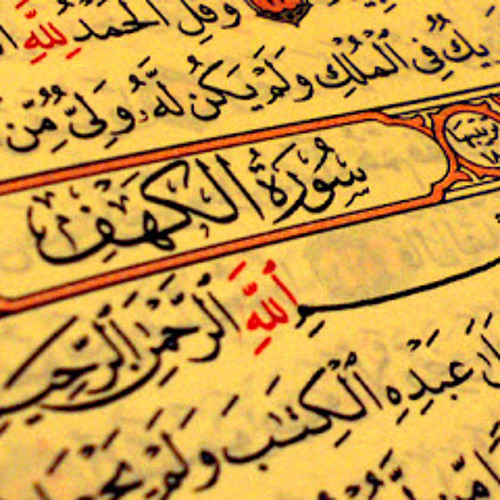 وَقُلِ ٱلْحَمْدُ لِلَّهِ
يكٌ فِى ٱلْمُلْكِ وَلَمْ يَكُن لَّهُۥ وَلِىٌّ مِّنَ
سُورَةُ الكَهْفِ
بِسْمِ ٱللَّهِ ٱلرَّحْمَٰنِ ٱلرَّحِي
عَبْدِهِ ٱلْكِتَٰبَ وَلَمْ يَجْعَل